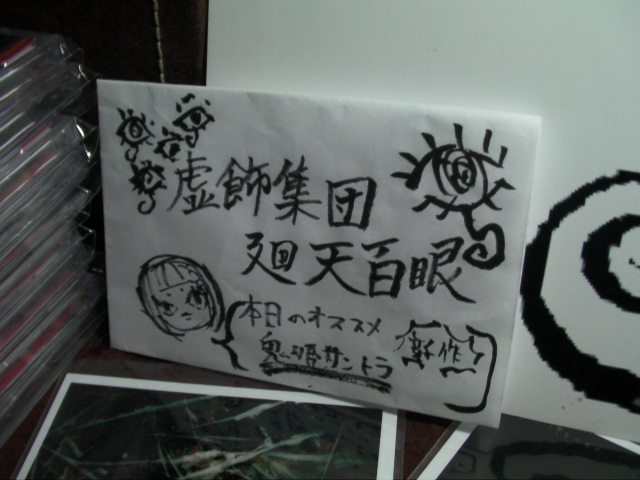 虚飾集団
廻天百眼
本日のオススメ
鬼姫サントラ
新作